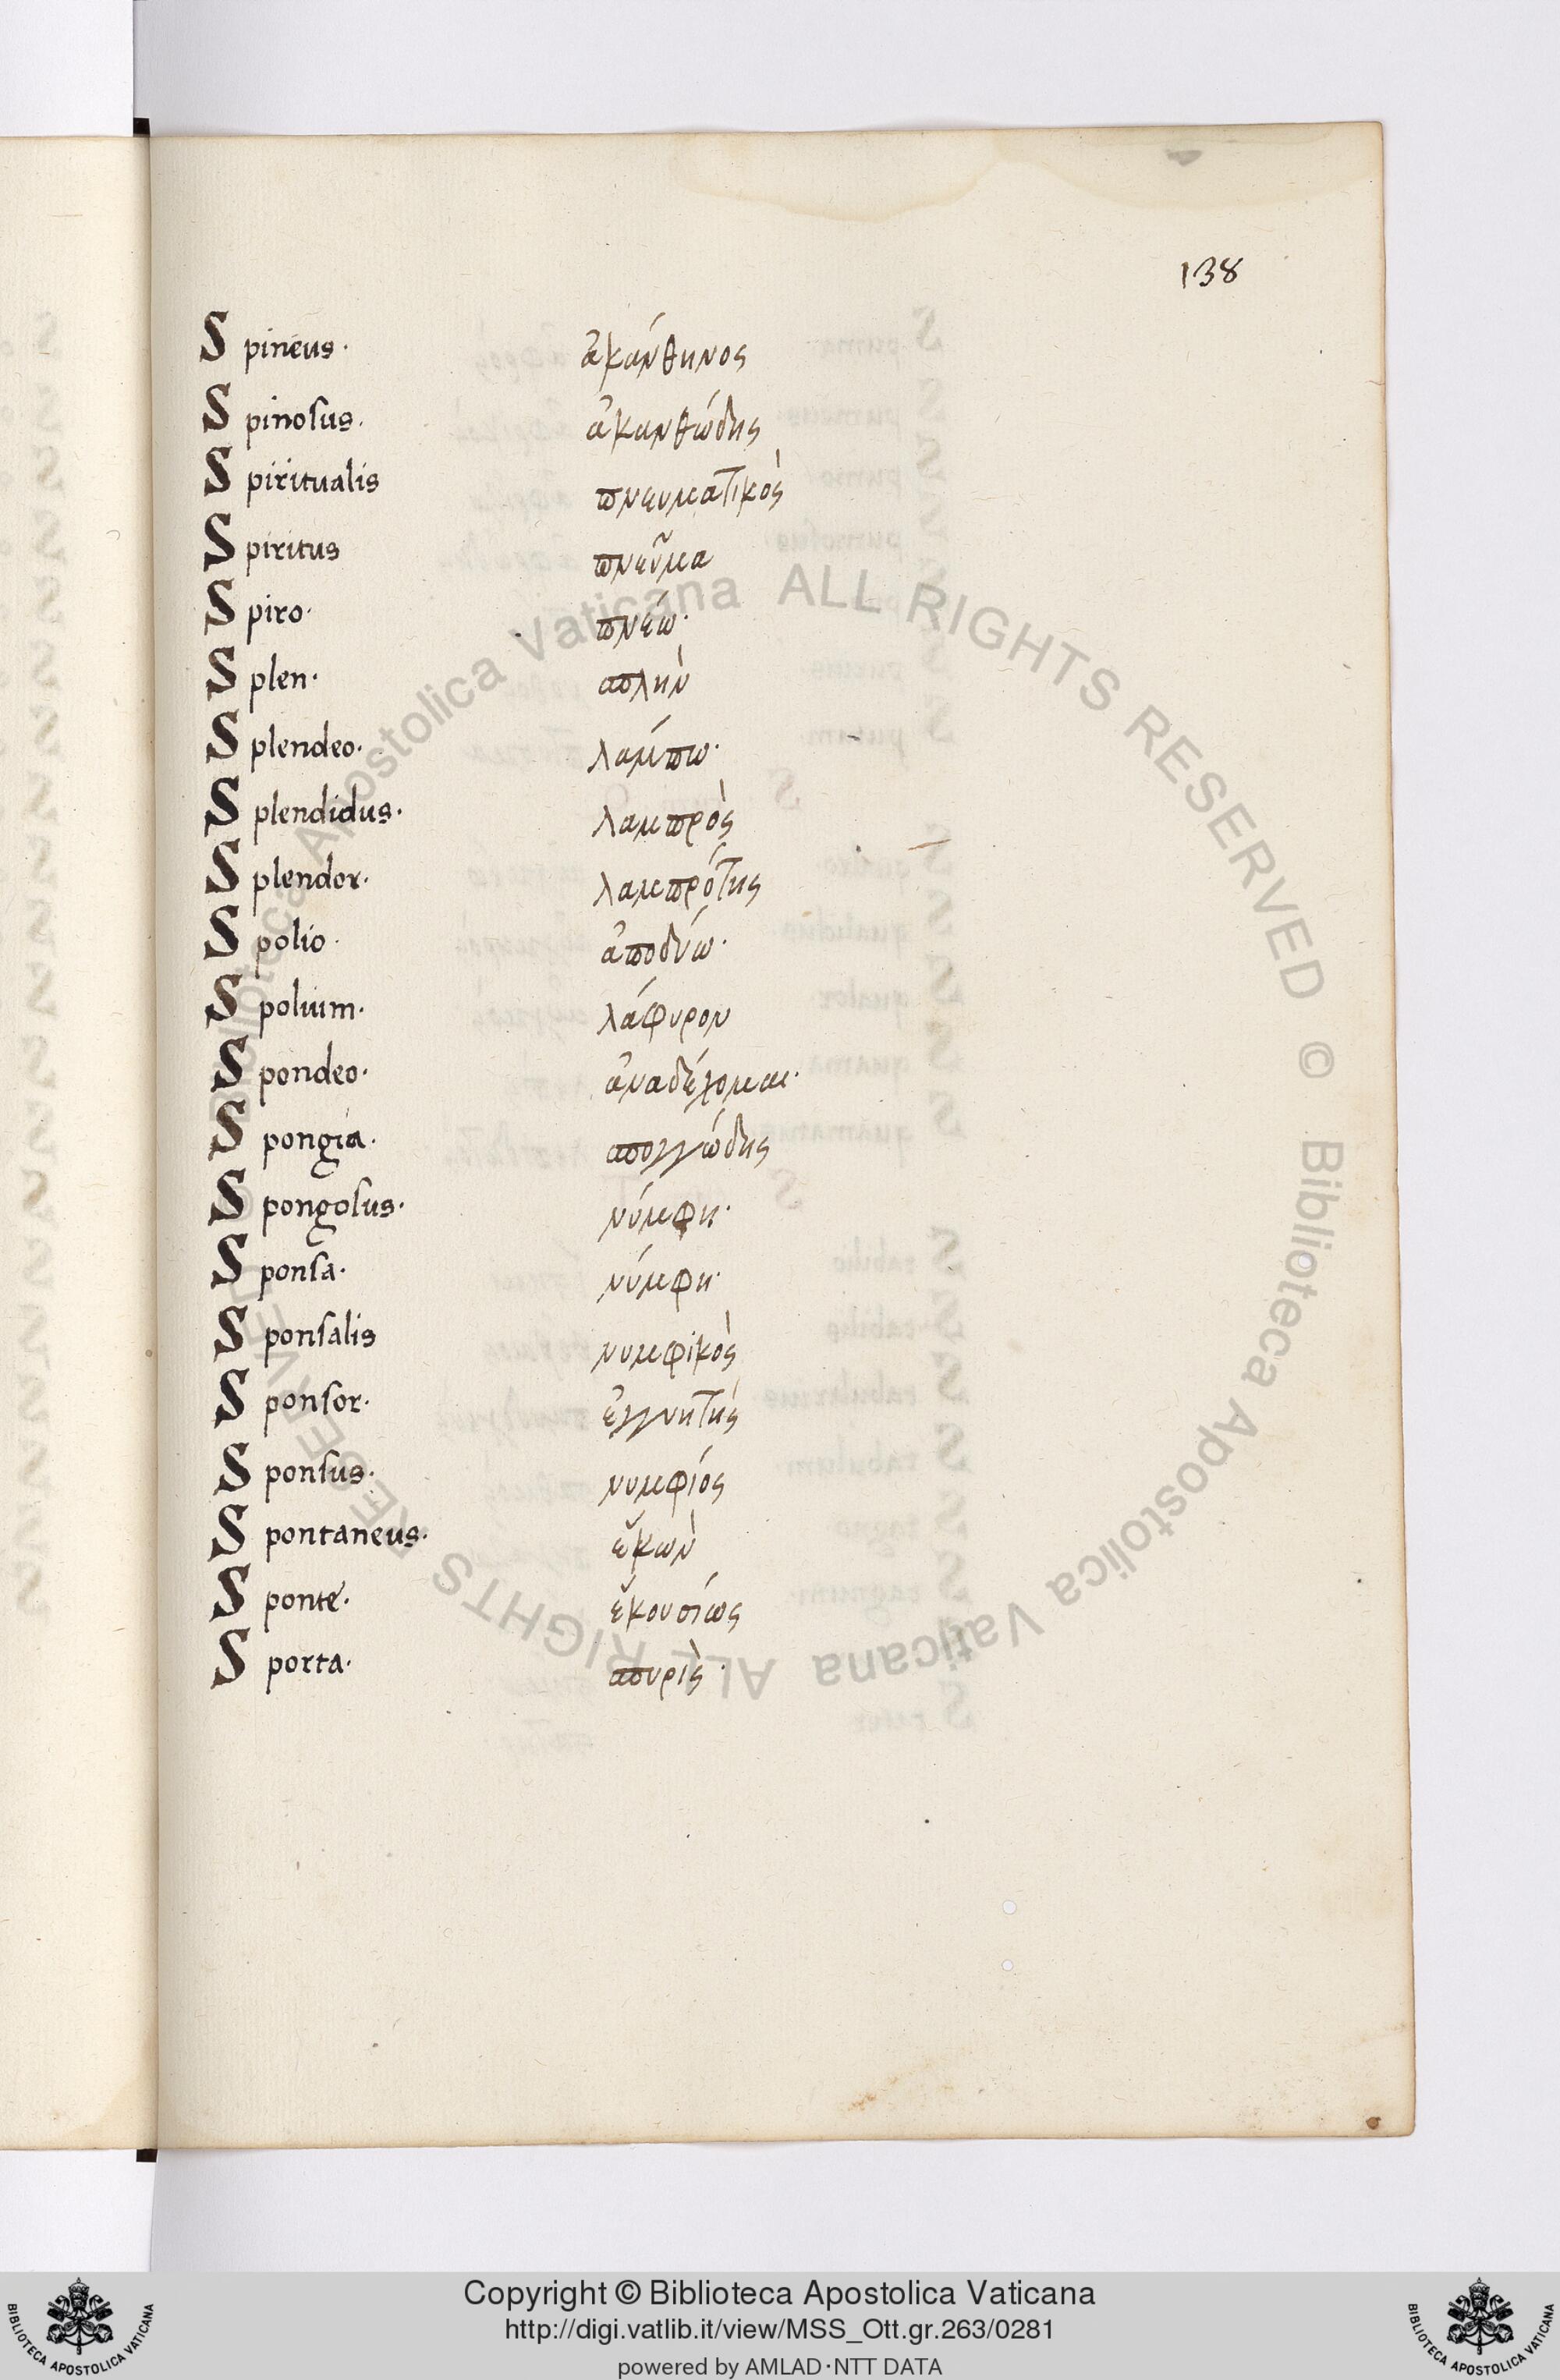 138
Spineus· ἀκάνθηνος
Spinosus. ἀκανθώδης
Spiritualis πνευματικὸς
Spiritus πνεῦμα
Spiro· πνέω·
Splen· σπλὴν
Splendeo· λάμπω·
Splendidus· λαμπρὸς
Splendor· λαμπρότης
Spolio· ἀποδύω·
Spolium· λάφυρον
Spondeo· ἀναδέχομαι·
Spongia· σπογγώδης
Spongosus· νύμφη·
Sponsa· νύμφη·
Sponsalis νυμφικὸς
Sponsor· ἐγγυητὴς
Sponsus· νυμφίος
Spontaneus· ἑκὼν
Sponte· ἑκουσίως
Sporta· σπυρὶς·
Biblioteca Apostolica Vaticana ALL RIGHTS RESERVED © Biblioteca Apostolica Vaticana ALL RIGHTS RESERVED ©
Copyright © Biblioteca Apostolica Vaticana
http://digi.vatlib.it/view/MSS_Ott.gr.263/0281
powered by AMLAD·NTT DATA
BIBLIOTECA APOSTOLICA VATICANA
BIBLIOTECA APOSTOLICA VATICANA